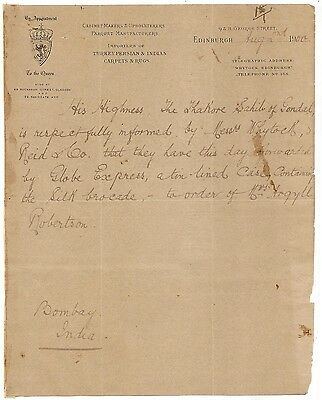 By Appointment
To the Queen
CABINET MAKERS & UPHOLSTERERS
PARQUET MANUFACTURERS
IMPORTERS OF
TURKEY PERSIAN & INDIAN
CARPETS & RUGS.
9 & 11 GEORGE STREET,
EDINBURGH 1900
TELEGRAPHIC ADDRESS
"WHYTOCK, EDINBURGH"
TELEPHONE Nº
His Highness The Thakore Sahib of Gondal,
is respectfully informed by Messrs Whytock,
Reid & Co. that they have this day forwarded
by Globe Express, a tin-lined Case, Containing
the Silk brocade, - to order of Mrs Argyll
Robertson.
Bombay
India